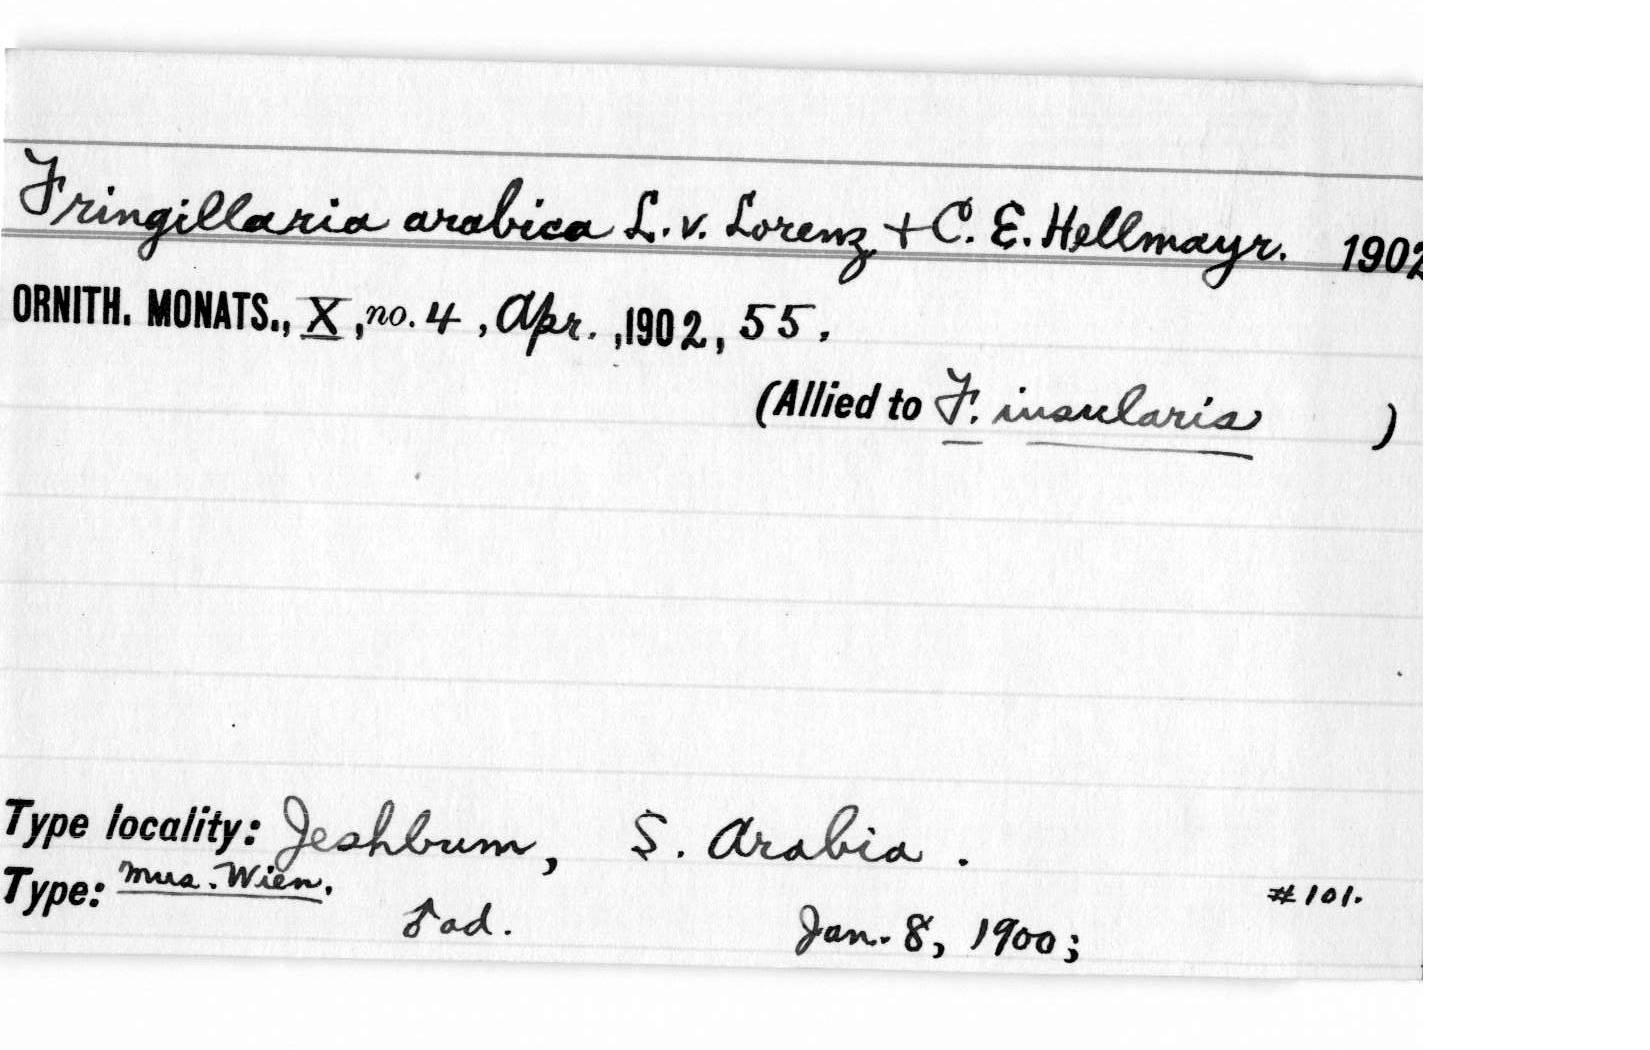 Fringillaria arabica L. v. Lorenz + C. E. Hellmayr. 1902
ORNITH. MONATS., X, no. 4, Apr., 1902, 55.
(Allied to F. insularis )
Type locality: Jeshbum, S. Arabia.
Type: Mus. Wien. #101.
♂ ad. Jan. 8, 1900;